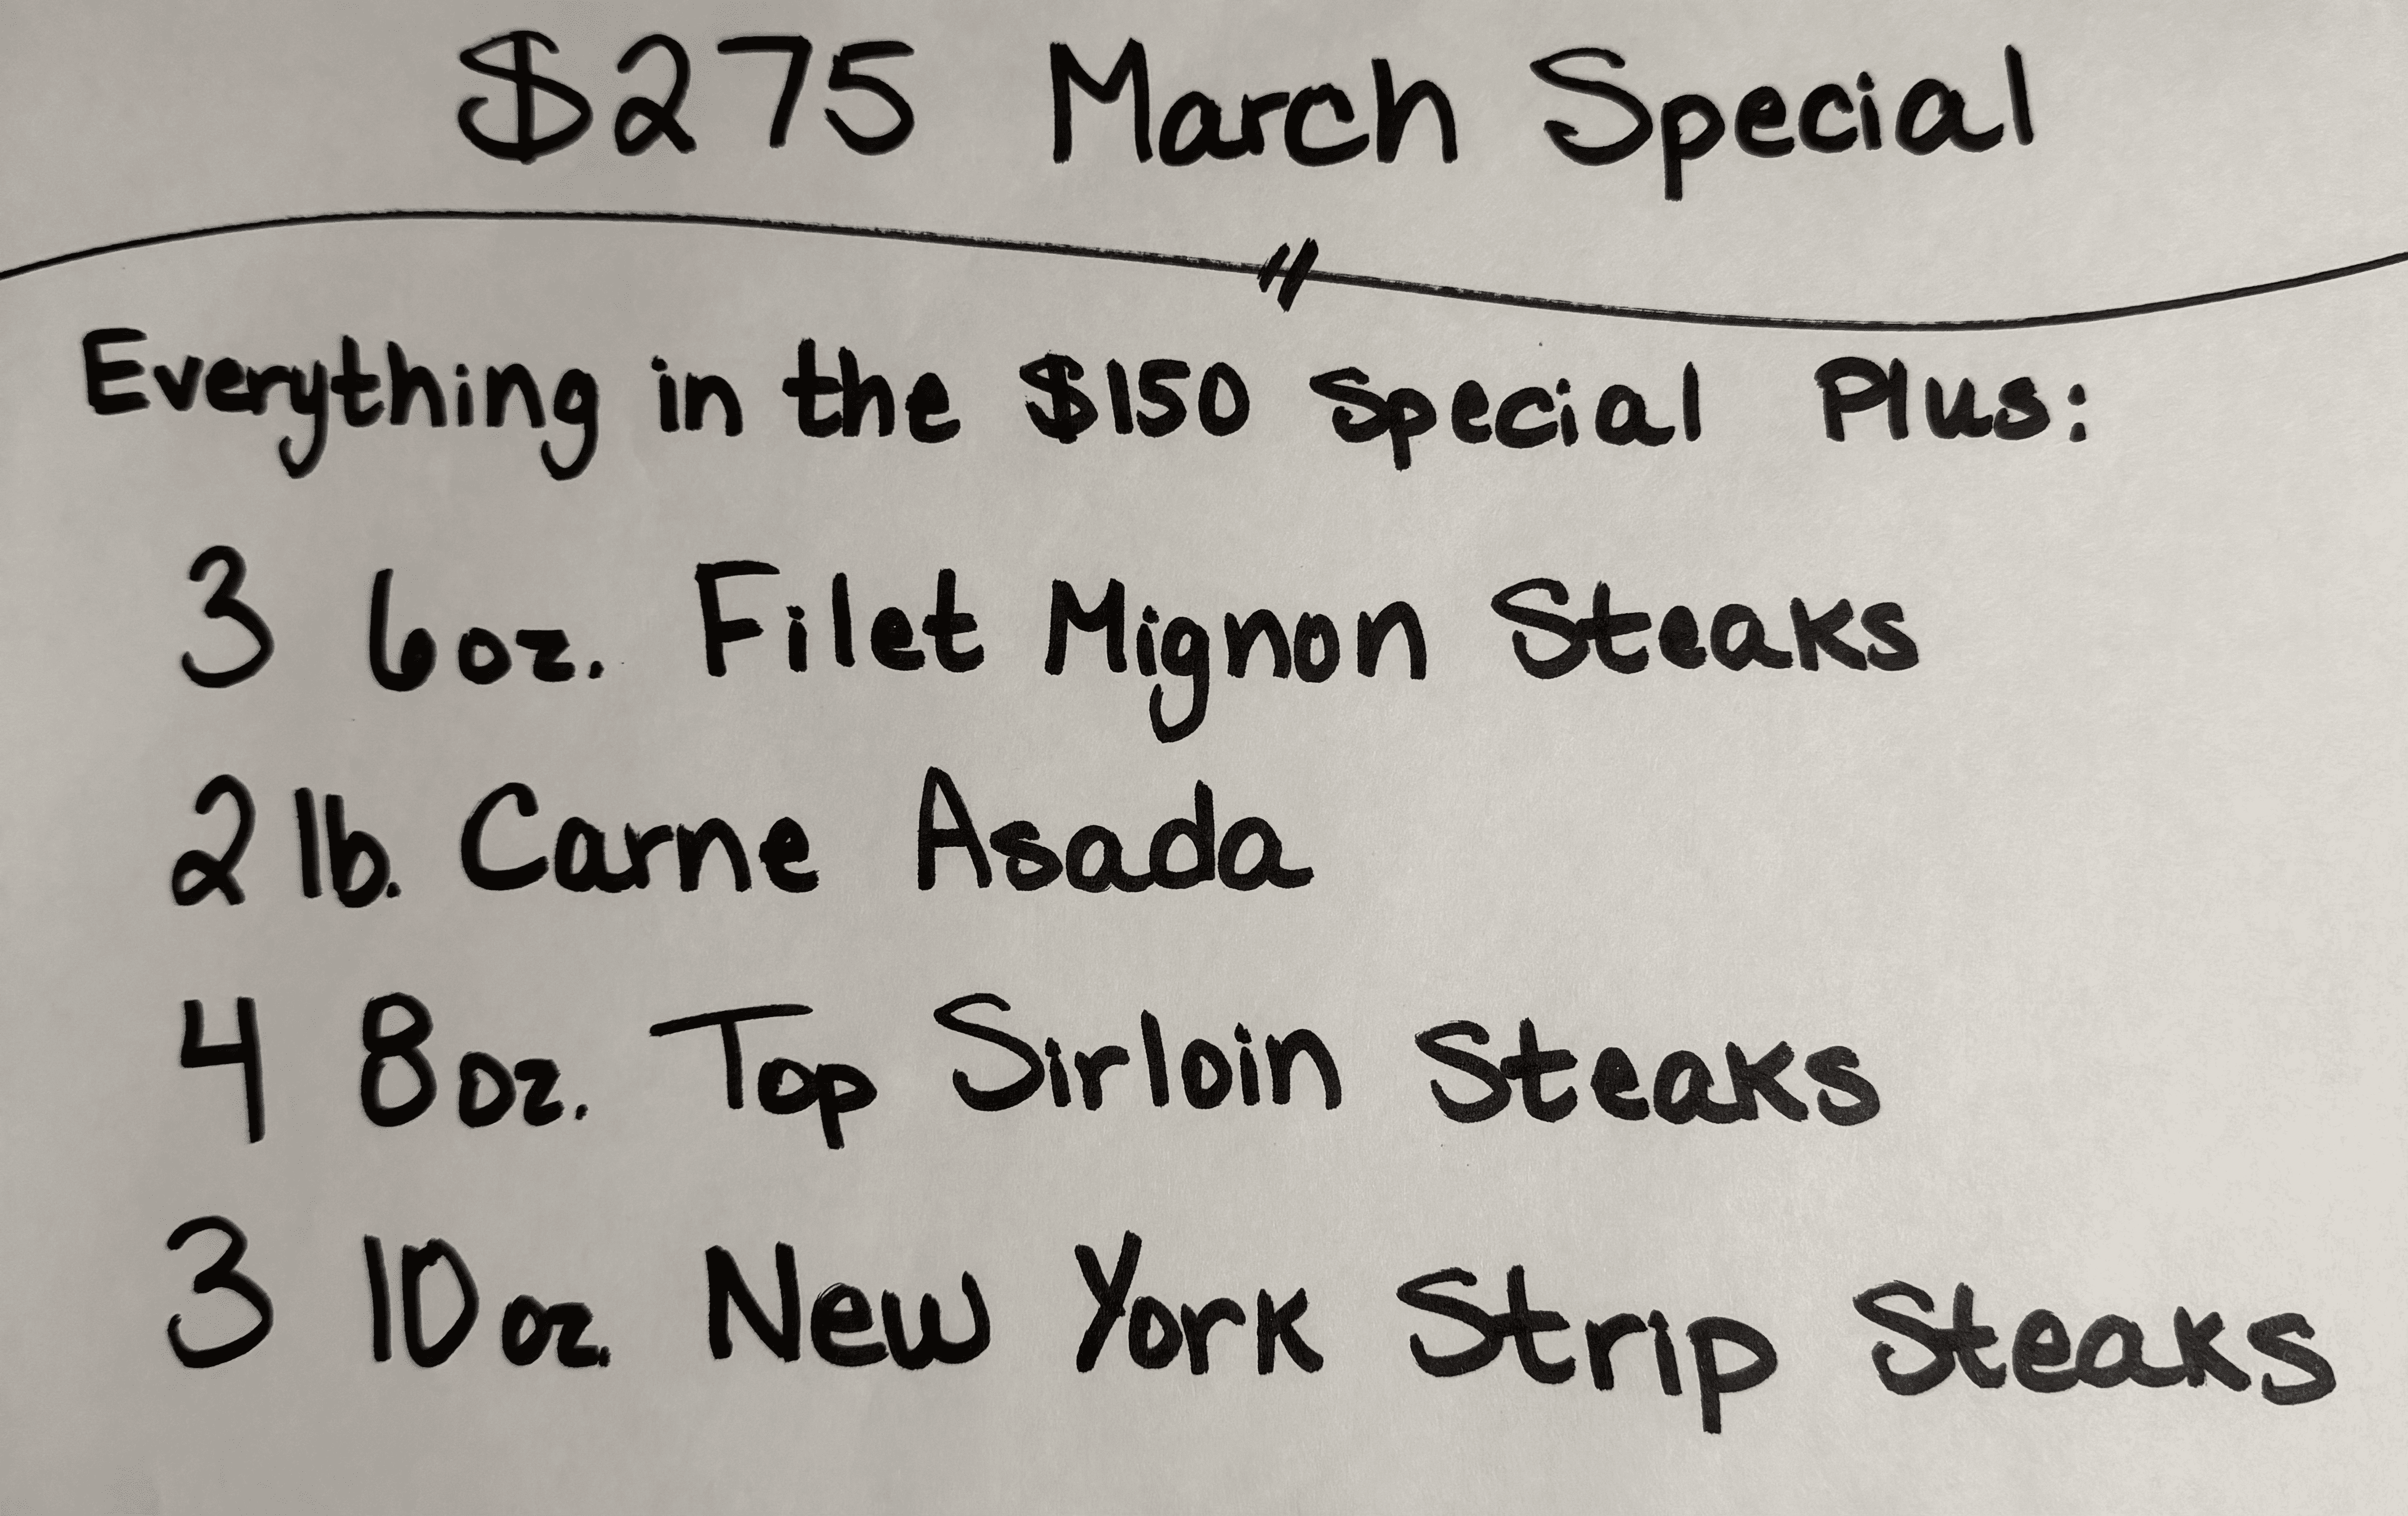 $275 March Special
Everything in the $150 Special Plus:
3 6oz. Filet Mignon Steaks
2 lb. Carne Asada
4 8oz. Top Sirloin Steaks
3 10oz. New York Strip Steaks